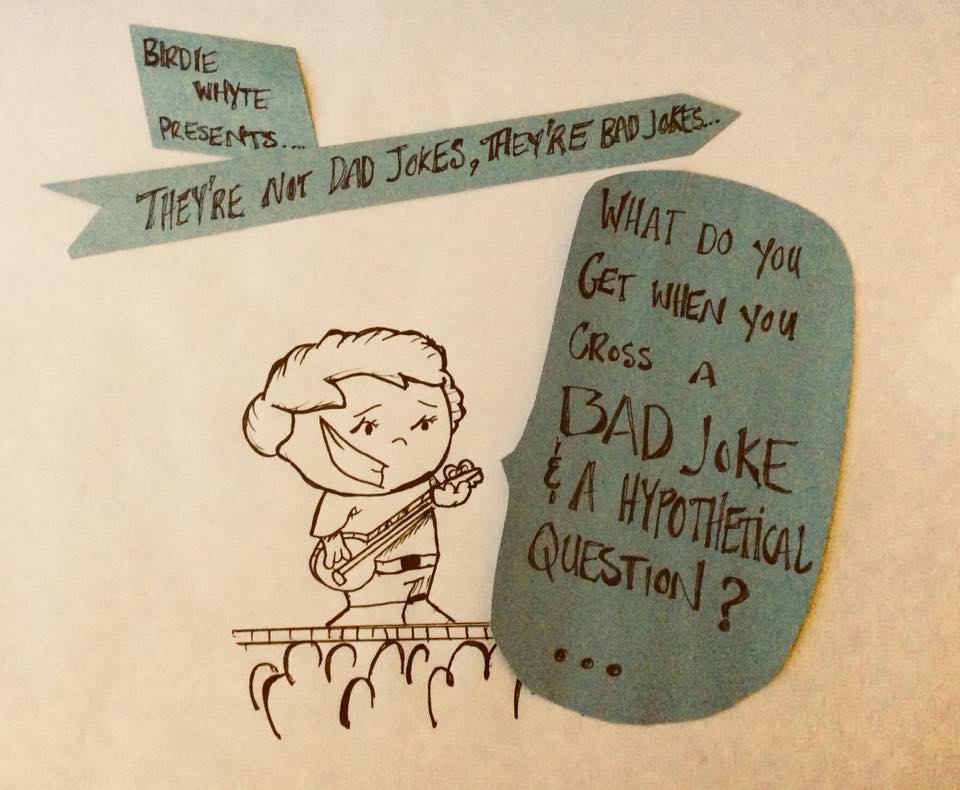 BIRDIE
WHYTE
PRESENTS....
THEY'RE NOT DAD JOKES, THEY'RE BAD JOKES...
WHAT DO YOU
GET WHEN YOU
CROSS A
BAD JOKE
& A HYPOTHETICAL
QUESTION?
...